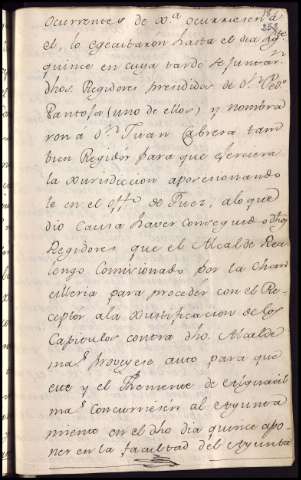 ocurrentes de xa ocurriesen á
el, lo egecutaron hasta el dia
quince en cuya tarde se juntaron
dhos. Regidores presididos de Dn. Pedro
Pantoja (uno de ellos) y nombra
ron a Dn. Juan Cabrera tam
bien Regidor para que egerciera
la Xurisdiccion aposesionando
le en el offo. de Juez, a lo que
dio causa haver conseguido dhos
Regidores que el Alcalde Rea
lengo Comisionado por la Chan
cilleria para proceder con el Re-
ceptor a la Xustificacion de los
Capitulos contra dho. Alcalde
mar. proveyese auto para que
este y el Theniente de
mar. concurriesen al Ayunta
miento en el dho dia quince apo-
ner en la facultad del Ayunta